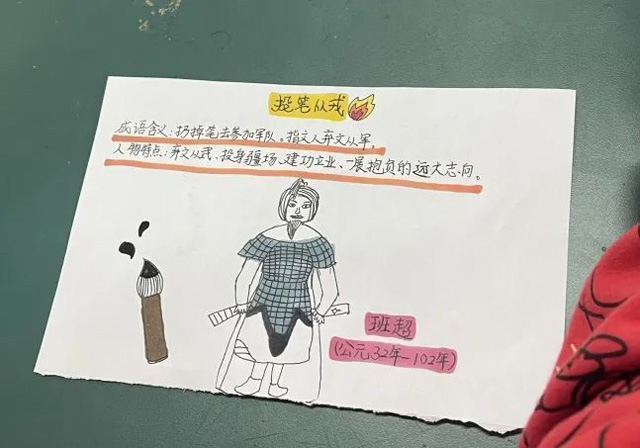 投笔从戎
成语含义:扔掉笔去参加军队。指文人弃文从军,
人物特点:弃文从武、投身疆场、建功立业、一展抱负的远大志向。
班超
(公元32年-102年)